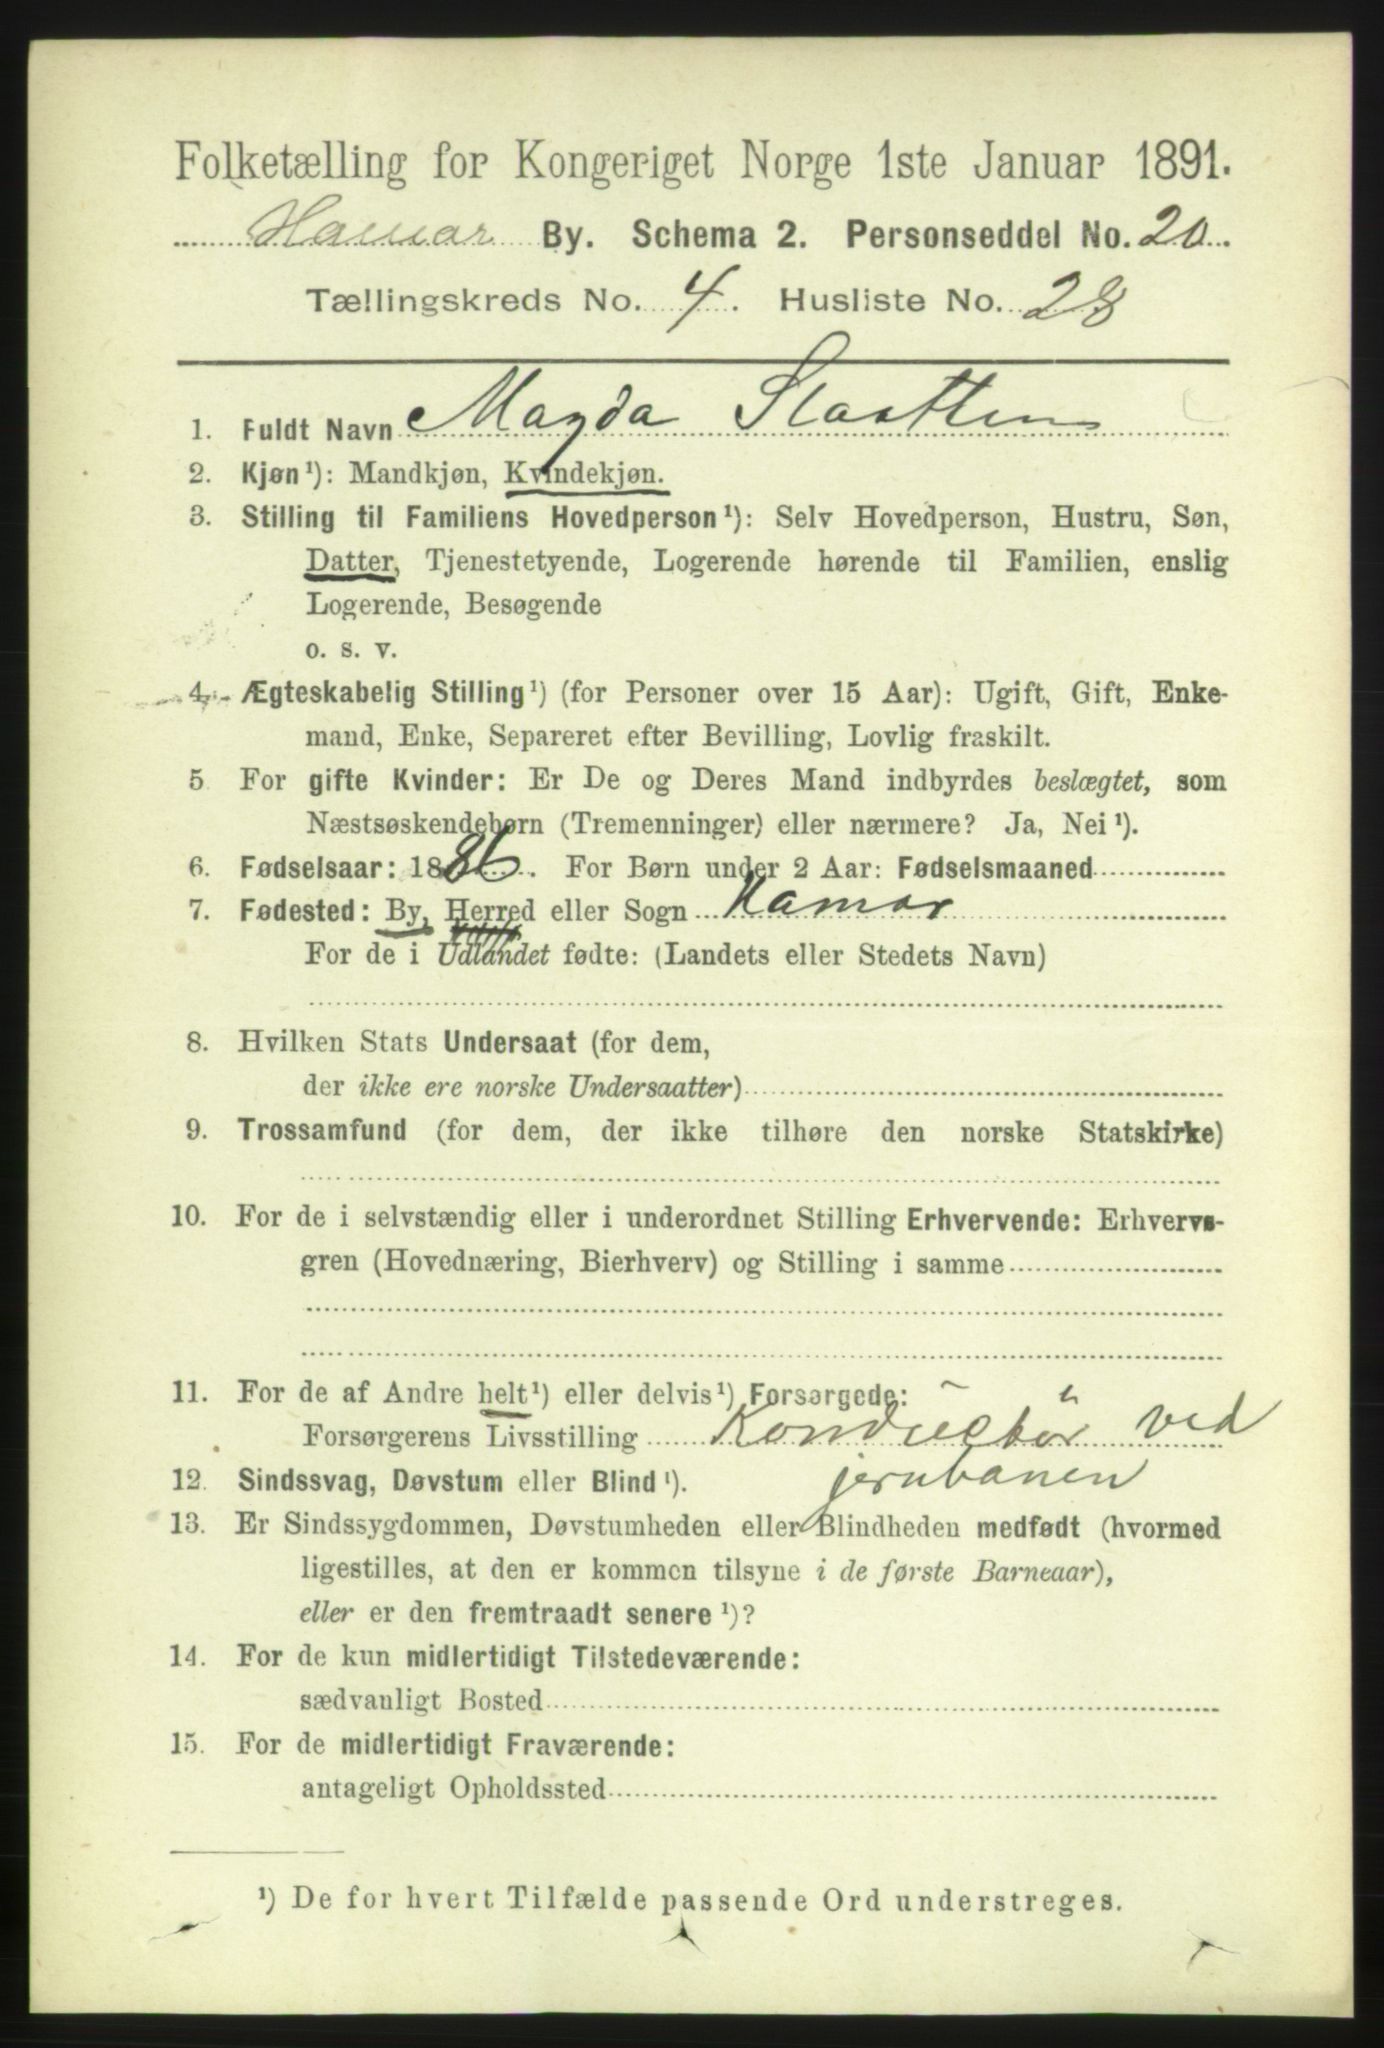 Folketælling for Kongeriget Norge 1ste Januar 1891.
Hamar By. Schema 2. Personseddel No. 20.
Tællingskreds No. 4. Husliste No. 28
1. Fuldt Navn Magda
2. Kjøn¹): Mandkjøn, Kvindekjøn.
3. Stilling til Familiens Hovedperson¹): Selv Hovedperson, Hustru, Søn,
Datter, Tjenestetyende, Logerende hørende til Familien, enslig
Logerende, Besøgende
o. s. v.
4. Ægteskabelig Stilling¹) (for Personer over 15 Aar): Ugift, Gift, Enke-
mand, Enke, Separeret efter Bevilling, Lovlig fraskilt.
5 For gifte Kvinder: Er De og Deres Mand indbyrdes beslægtet, som
Næstsøskendebørn (Tremenninger) eller nærmere? Ja, Nei¹).
6. Fødselsaar: 1886. For Børn under 2 Aar: Fødselsmaaned
7. Fødested: By, Herred eller Sogn Hamar
For de i Udlandet fødte: (Landets eller Stedets Navn)
8. Hvilken Stats Undersaat (for dem,
der ikke ere norske Undersaatter)
9. Trossamfund (for dem, der ikke tilhøre den norske Statskirke)
10. For de i selvstændig eller i underordnet Stilling Erhvervende: Erhvervs-
gren (Hovednæring, Bierhverv) og Stilling i samme
11. For de af Andre helt¹) eller delvis¹) Forsørgede:
Forsørgerens Livsstilling Konduktør ved
jernbanen
12. Sindssvag, Døvstum eller Blind¹).
13. Er Sindssygdommen, Døvstumheden eller Blindheden medfødt (hvormed
ligestilles, at den er kommen tilsyne i de første Barneaar),
eller er den fremtraadt senere¹)?
14. For de kun midlertidigt Tilstedeværende:
sædvanligt Bosted
15. For de midlertidigt Fraværende:
antageligt Opholdssted
¹) De for hvert Tilfælde passende Ord understreges.